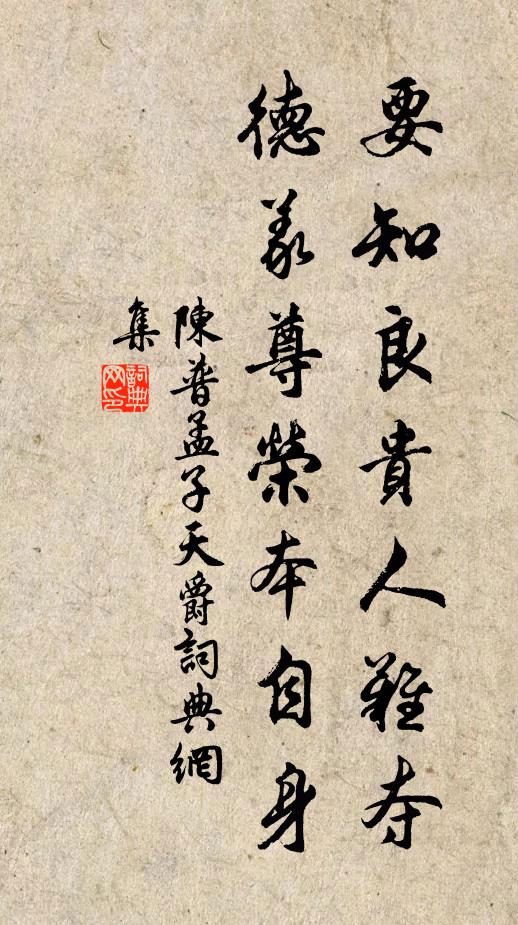 要知良貴人難夺
德義尊榮本自身
陳普孟子天爵詞典網
集
詞典
网印